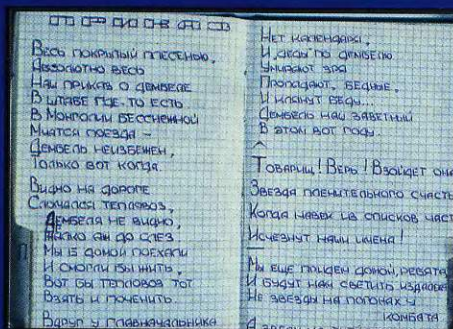 Весь покрытый плесенью,
Абсолютно весь
Наш приказ о дембеле
В штабе где-то есть
В Монголии бесснежной
Мчатся поезда –
Дембель неизбежен,
Только вот когда.
Видно на дороге
Сломался тепловоз,
Дембеля не видно,
Жалко аж до слёз
Мы б домой поехали
И смогли бы жить,
Вот бы тепловоз тот
Взять и починить.
Вдруг у главначальника
Нет календаря,
И "деды" по дембелю
Умирают зря
Пропадают, бедные,
И клянут беду...
Дембель наш заветный
В этом вот году.
Товарищ! Верь! Взойдет она
Звезда пленительного счасть
Когда навек из списков част
Исчезнут наши имена!
Мы ещё придём домой, ребята
И будут нам светить издалека
Не звезды на погонах у
комбата